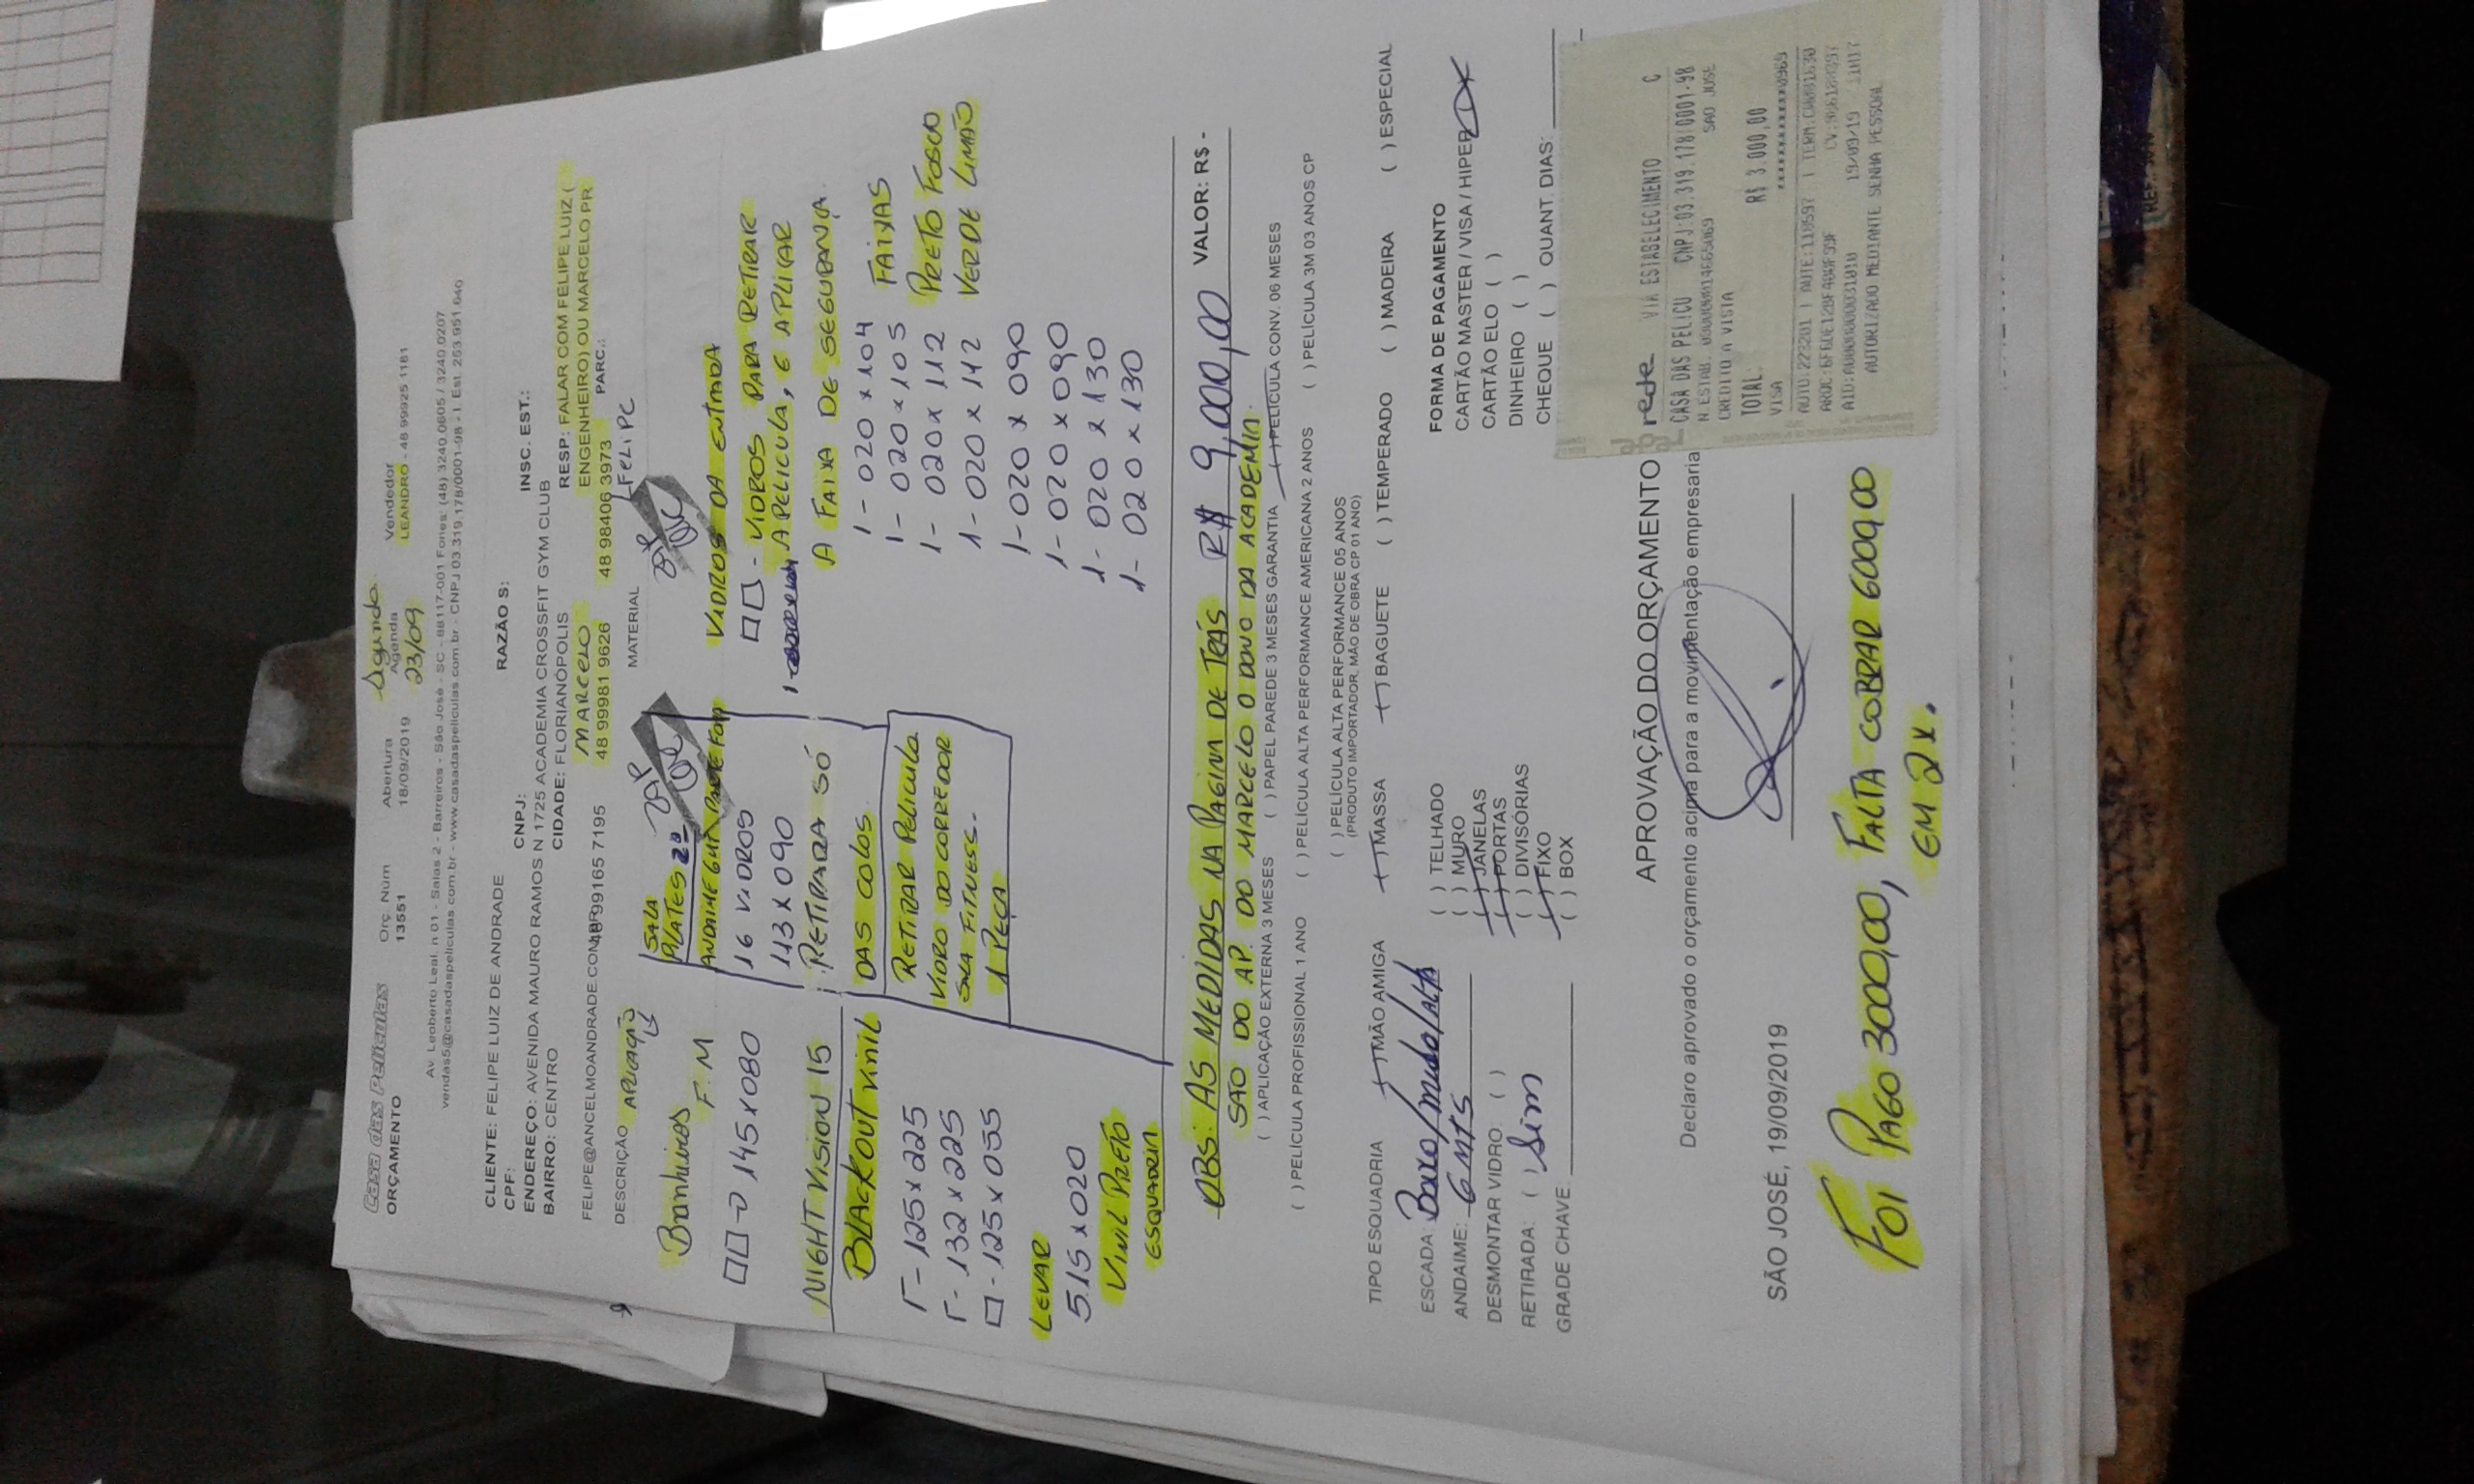 Casa das Películas
ORÇAMENTO
Orç. Núm
13551
Abertura
18/09/2019
Segunda
Agenda
23/09
Vendedor
LEANDRO - 48 99925 1161
Av. Leoberto Leal, n 01 - Salas 2 - Barreiros - São José - SC - 88117-001 Fones: (48) 3240.0805 / 3240.0207
vendas5@casadaspeliculas.com.br - www.casadaspeliculas.com.br - CNPJ 03.319.178/0001-98 - I. Est. 253.951.640
CLIENTE: FELIPE LUIZ DE ANDRADE
RAZÃO S:
CPF:
CNPJ:
INSC. EST.:
ENDEREÇO: AVENIDA MAURO RAMOS N 1725 ACADEMIA CROSSFIT GYM CLUB
BAIRRO: CENTRO
CIDADE: FLORIANÓPOLIS
RESP: FALAR COM FELIPE LUIZ (
ENGENHEIRO) OU MARCELO PR
MARCELO
FELIPE@ANCELMOANDRADE.COM.BR
48 99165 7195
48 99981 9626
48 98406 3973
PARC.:
FELIPE
DESCRIÇÃO
APLICAÇÃO
MATERIAL
Banheiros
F.M
145x080
NIGHT VISION 15
BLACKOUT VINIL
125x225
132x225
125x055
LEVAR
5.15x020
VINIL PRETO
ESQUADRIA
SALA
PILATES
16 VIDROS
113x090
RETIRADA SÓ
DAS COLAS
RETIRAR PELICULA
VIDRO DO CORREDOR
SALA FITNESS.
1 PEÇA
VIDROS DA ENTRADA
- VIDROS PARA RETIRAR
A PELICULA, E APLICAR
A FAIXA DE SEGURANÇA.
1 - 020 x 104 FAIXAS
1 - 020 x 105 PRETO FOSCO
1 - 020 x 112 VERDE LIMÃO
1 - 020 x 142
1 - 020 x 090
1 - 020 x 090
1 - 020 x 130
1 - 020 x 130
OBS: AS MEDIDAS NA PAGINA DE TRÁS R$ 9,000,00 VALOR: R$ -
SÃO DO AP. DO MARCELO O DONO DA ACADEMIA.
( ) APLICAÇÃO EXTERNA 3 MESES ( ) PAPEL PAREDE 3 MESES GARANTIA ( ) PELÍCULA CONV. 06 MESES
( ) PELÍCULA PROFISSIONAL 1 ANO ( ) PELÍCULA ALTA PERFORMANCE AMERICANA 2 ANOS ( ) PELÍCULA 3M 03 ANOS CP
( ) PELÍCULA ALTA PERFORMANCE 05 ANOS
(PRODUTO IMPORTADOR, MÃO DE OBRA CP 01 ANO)
TIPO ESQUADRIA ( ) MÃO AMIGA ( ) MASSA ( ) BAGUETE ( ) TEMPERADO ( ) MADEIRA ( ) ESPECIAL
ESCADA: Baixo/médio/alta
ANDAIME: 6 MTS
DESMONTAR VIDRO: ( )
RETIRADA: ( ) Sim
GRADE CHAVE:
( ) TELHADO
( ) MURO
( ) JANELAS
( ) PORTAS
( ) DIVISÓRIAS
( ) FIXO
( ) BOX
FORMA DE PAGAMENTO
CARTÃO MASTER / VISA / HIPER
CARTÃO ELO ( )
DINHEIRO ( )
CHEQUE ( ) QUANT. DIAS:
APROVAÇÃO DO ORÇAMENTO
Declaro aprovado o orçamento acima para a movimentação empresaria
SÃO JOSÉ, 19/09/2019
FOI PAGO 3000,00, FALTA COBRAR 6000,00
EM 2x.
rede VIA ESTABELECIMENTO C
CASA DAS PELICU CNPJ:03.319.178/0001-98
SAO JOSE
CREDITO A VISTA
TOTAL: R$ 3.000,00
VISA
19/09/19 11H17
AUTORIZADO MEDIANTE SENHA PESSOAL